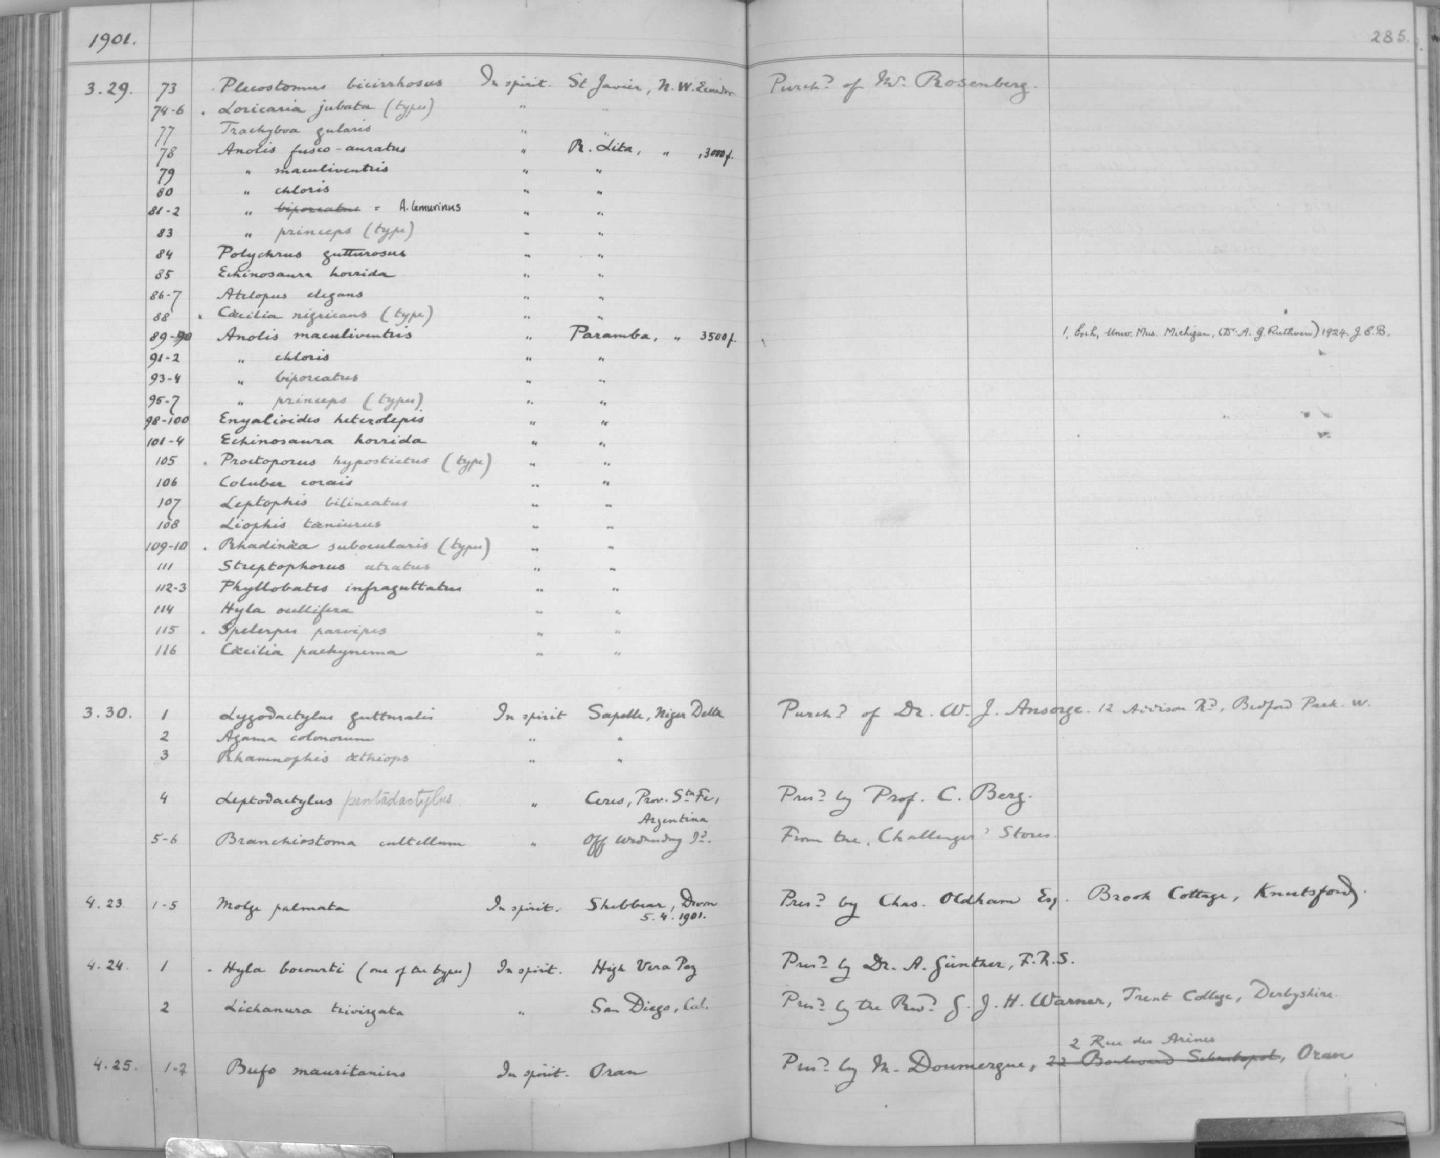 1901. 285.
3.29. 73 Plecostomus bicirrhosus In spirit. St Javier, N.W. Ecuador Purchd of Mr. Rosenberg.
74-6 . Loricaria jubata (types) " "
77 Trachyboa gularis " "
78 Anolis fusco-auratus " R. Lita, " , 3000 f.
79 " maculiventris " "
80 " chloris " "
81-2 " biporcatus = A. lemurinus " "
83 " princeps (type) " "
84 Polychrus gutturosus " "
85 Echinosaura horrida " "
86-7 Atelopus elegans " "
88 . Cæcilia nigricans (type) " "
89-90 Anolis maculiventris " Paramba, " 3500 f. 1, Exch, Univ. Mus. Michigan, (Dr A. G. Ruthven) 1924. J.C.B.
91-2 " chloris " "
93-4 " biporcatus " "
95-7 " princeps (types) " "
98-100 Enyalioides heterolepis " "
101-4 Echinosaura horrida " "
105 . Proctoporus hypostictus (type) " "
106 Coluber corais " "
107 Leptophis bilineatus " "
108 Liophis tæniurus " "
109-10 . Rhadinæa subocularis (types) " "
111 Streptophorus atratus " "
112-3 Phyllobates infraguttatus " "
114 Hyla ocellifera " "
115 . Spelerpes parvipes " "
116 Cæcilia pachynema " "
3.30. 1 Lygodactylus gutturalis In spirit Sapelle, Niger Delta Purchd of Dr. W. J. Ansorge. 12 Addison Rd, Bedford Park. W.
2 Agama colonorum " "
3 Rhamnophis æthiops " "
4 Leptodactylus pentadactylus " Ceres, Prov. Sta Fe, Presd by Prof. C. Berg.
Argentina
5-6 Branchiostoma cultellum " Off Wednesday Id. From the 'Challenger' Stores.
4.23. 1-5 Molge palmata In spirit. Shebbear, Devon Presd by Chas. Oldham Esq. Brook Cottage, Knutsford.
5.4.1901.
4.24. 1 . Hyla bocourti (one of the types) In spirit. High Vera Paz Presd by Dr. A. Günther, F.R.S.
2 Lichanura trivirgata " San Diego, Cal. Presd by the Revd G. J. H. Warner, Trent College, Derbyshire.
2 Rue des Arènes
4.25. 1-2 Bufo mauritanicus In spirit. Oran Presd by M. Doumergue, 22 Boulevard Sebastopol, Oran